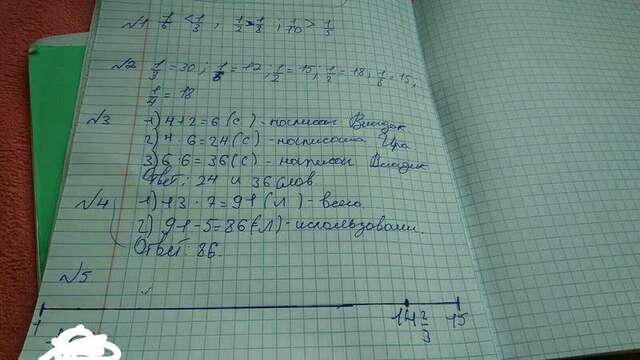 №1 1/6 < 1/3, 1/2 > 1/8; 1/10 > 1/5
№2 1/3 = 30; 1/6 = 12; 1/2 = 15; 1/2 = 18; 1/6 = 15,
1/4 = 18
№3 1) 4+2=6(с) - написал Владик
2) 4·6=24(с) - написала Ира
3) 6·6=36(с) - написал Владик
Ответ: 24 и 36 слов
№4 1) 13·7=91(л) - всего
2) 91-5=86(л) - использовали.
Ответ: 86.
№5
1 14 2/3 15